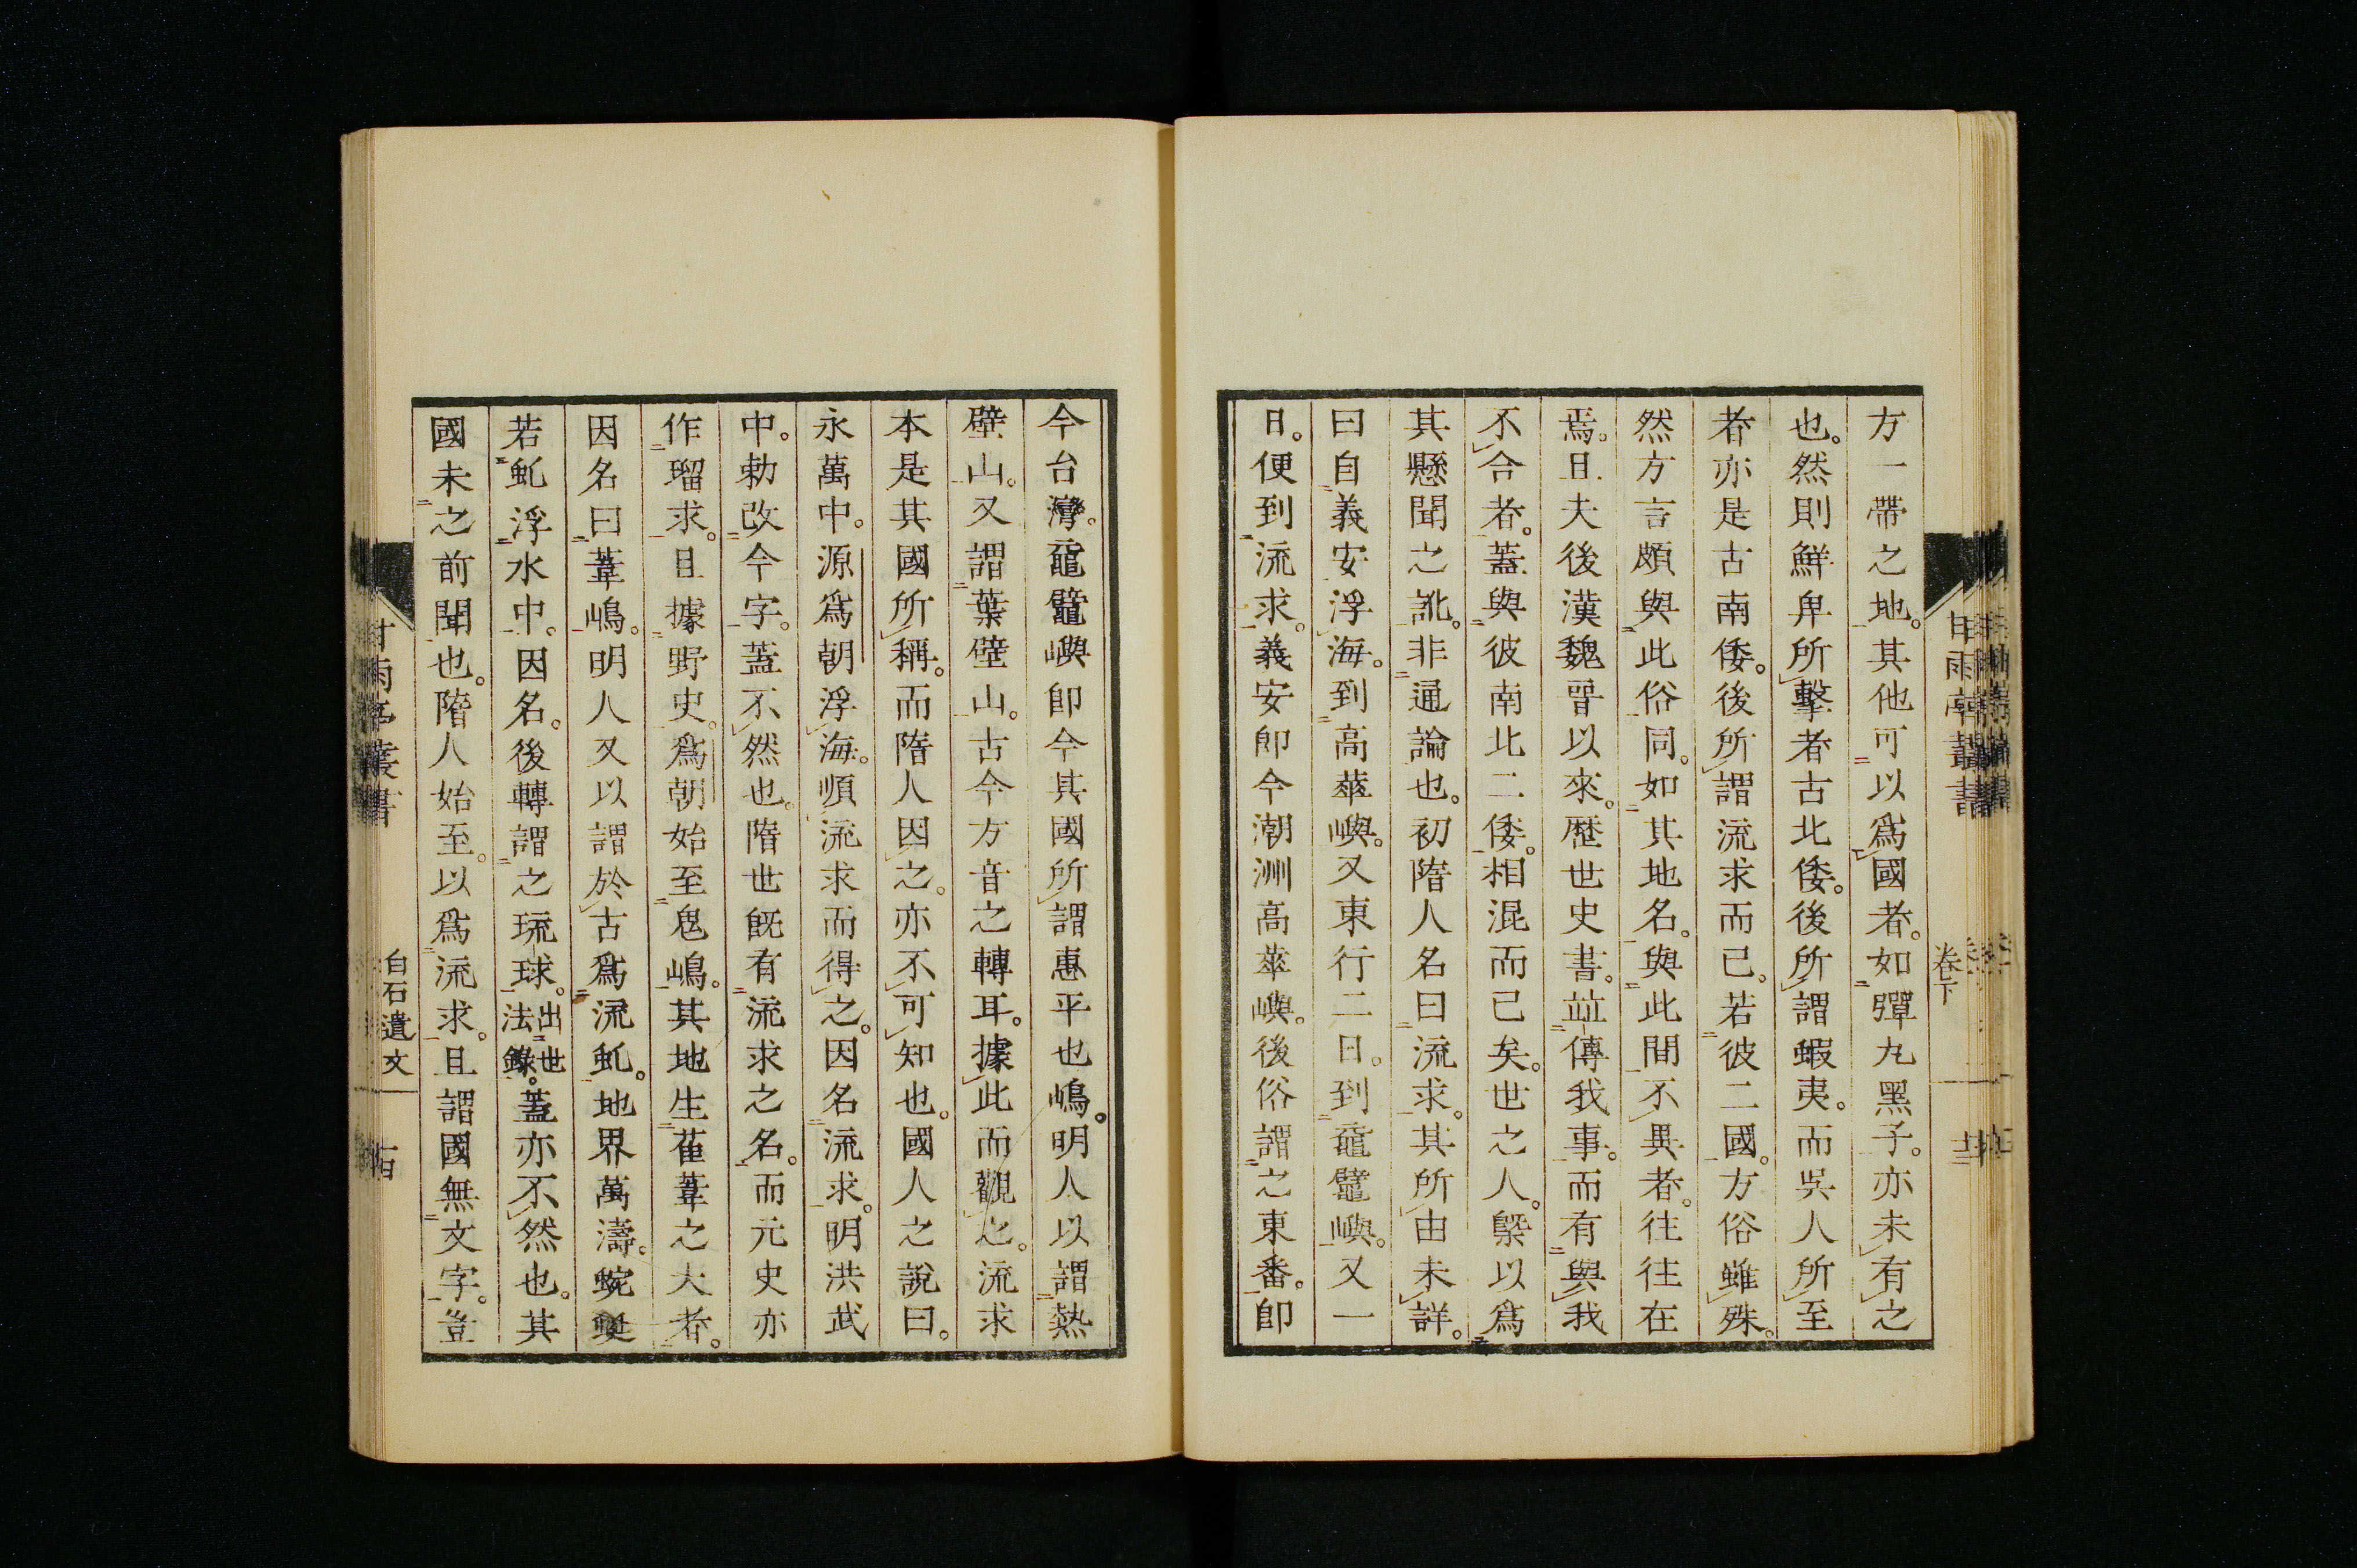 方一帶之地。其他可以爲國者。如彈丸黑子。亦未有之
也。然則鮮卑所擊者古北倭。後所謂蝦夷。而吳人所至
者亦是古南倭。後所謂流求而已。若彼二國。方俗雖殊。
然方言頗與此俗同。如其地名。與此間不異者。往往在
焉。且夫後漢魏晉以來。歷世史書。竝傳我事。而有與我
不合者。蓋與彼南北二倭。相混而已矣。世之人。槩以爲
其懸聞之訛。非通論也。初隋人名曰流求。其所由未詳。
曰自義安浮海。到高華嶼。又東行二日。到鼊嶼。又一
日。便到流求。義安卽今潮洲高華嶼。後俗謂之東番。卽
今台灣。鼊嶼卽今其國所謂惠平也嶋。明人以謂熱
壁山。又謂葉壁山。古今方音之轉耳。據此而觀之。流求
本是其國所稱。而隋人因之。亦不可知也。國人之說曰。
永萬中。源爲朝浮海。順流求而得之。因名流求。明洪武
中。勅改今字。蓋不然也。隋世旣有流求之名。而元史亦
作瑠求。且據野史。爲朝始至鬼嶋。其地生萑葦之大者。
因名曰葦嶋。明人又以謂於古爲流虬。地界萬濤。蜿蜒
若虬浮水中。因名。後轉謂之琉球。出世法錄。蓋亦不然也。其
國未之前聞也。隋人始至。以爲流求。且謂國無文字。豈
甘雨亭叢書
卷下
甘雨亭叢書
白石遺文